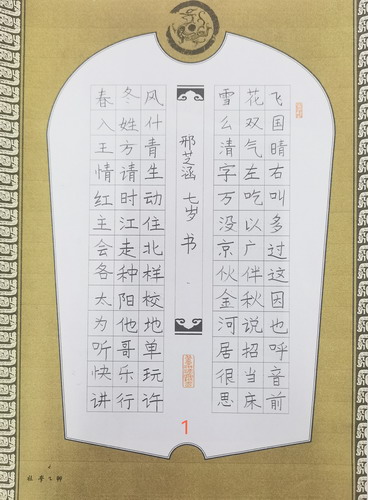 春冬风雪花飞
入姓什么双国
王方青清气晴
情请生字左右
红时动万吃叫
主江住没以多
会走北京广过
各种样伙伴这
太阳校金秋因
为他地河说也
听哥单居招呼
快乐玩很当音
讲行许思床前
邢芝涵 七岁 书
1